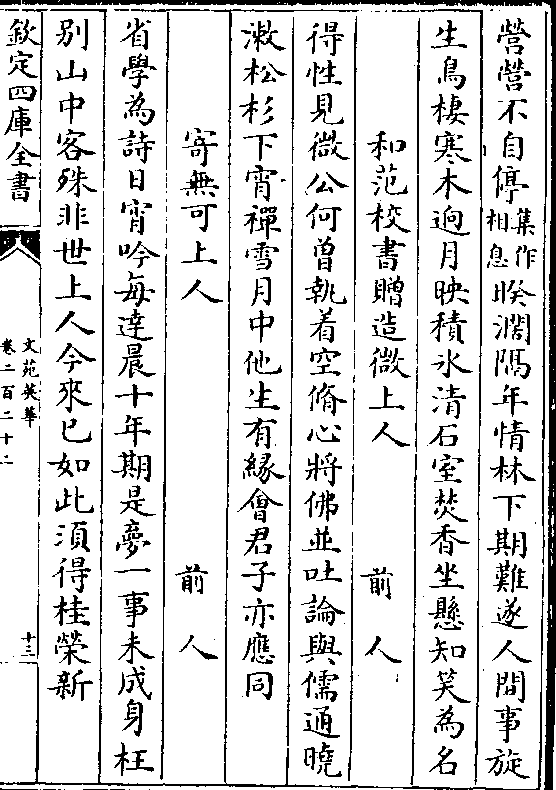 營營不自停集作相息睽濶隔年情林下期難遂人間事旋
生鳥棲寒木逈月映積氷清石室焚香坐懸知笑為名
和范校書贈造微上人　前人
得性見微公何曾執着空脩心將佛並吐論與儒通曉
漱松杉下宵禪雪月中他生有緣會君子亦應同
寄無可上人　前人
省學為詩日宵吟每達晨十年期是夢一事未成身枉
别山中客殊非世上人今來已如此須得桂榮新
欽定四庫全書
文苑英華
卷二百二十二
十三